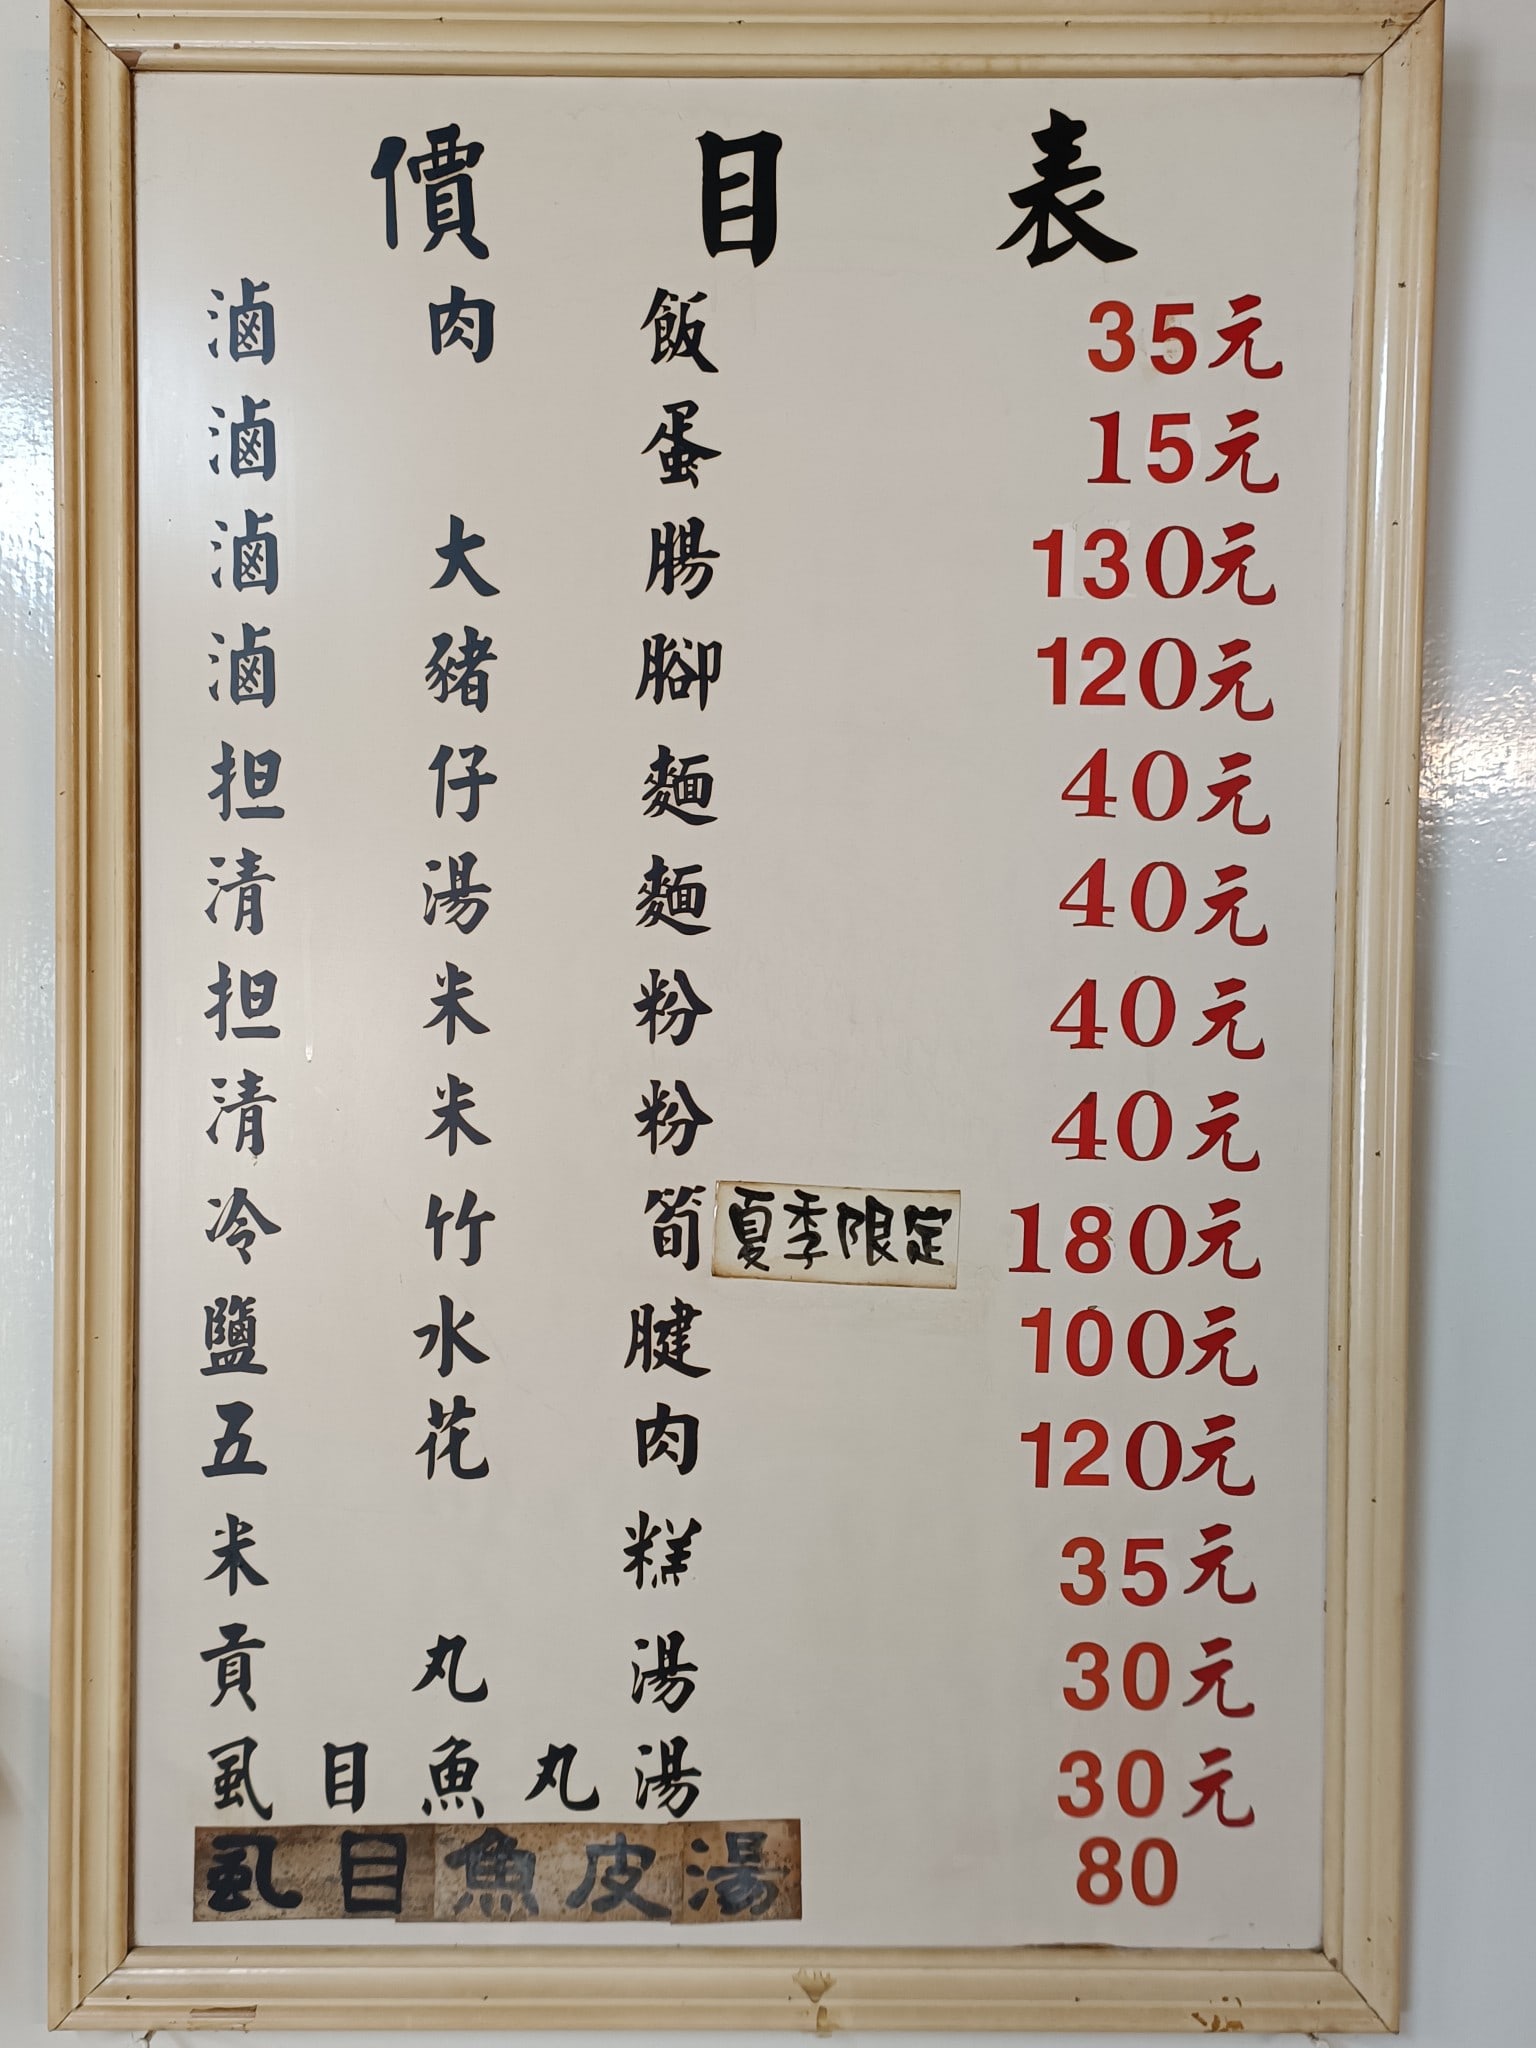 價目表
滷肉飯 35元
滷蛋 15元
滷大腸 130元
滷豬腳 120元
担仔麵 40元
清湯麵 40元
担米粉 40元
清米粉 40元
冷竹筍 夏季限定 180元
鹽水腱 100元
五花肉 120元
米糕 35元
貢丸湯 30元
虱目魚丸湯 30元
虱目魚皮湯 80